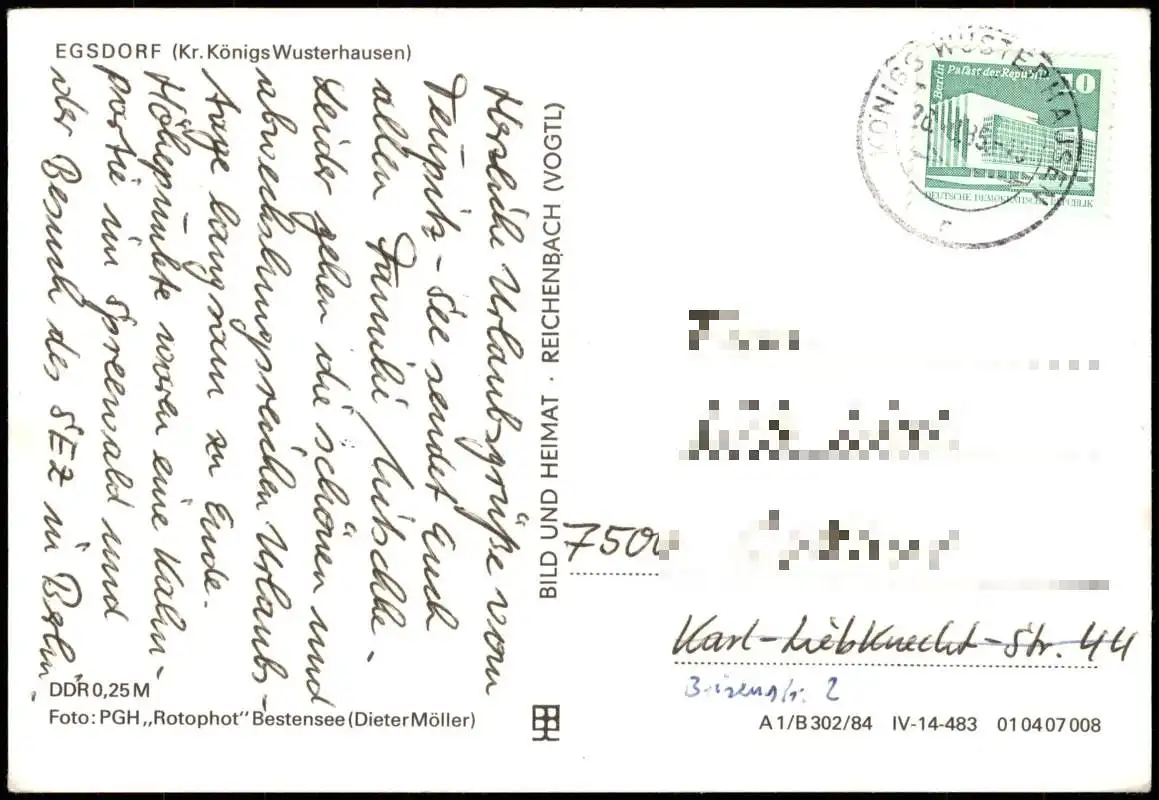 EGSDORF (Kr. Königs Wusterhausen)
Herzliche Urlaubsgrüße vom
Teupitz-See sendet Euch
allen Familie Nitschke.
Leider gehen die schönen und
abwechslungsreichen Urlaubs-
tage langsam zu Ende.
Höhepunkte waren eine Kahn-
partie im Spreewald und
der Besuch des SEZ in Berlin.
DDR 0,25 M
Foto: PGH „Rotophot" Bestensee (Dieter Möller)
BILD UND HEIMAT · REICHENBACH (VOGTL)
KÖNIGS WUSTERHAUSEN
Berlin
Palast der Republik
10
DEUTSCHE DEMOKRATISCHE REPUBLIK
750
Karl-Liebknecht-Str. 44
2
A 1/B 302/84 IV-14-483 01 04 07 008